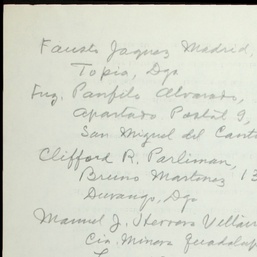 Fausto Jaquez Madrid,
Topia, Dgo
Ing. Panfilo Alvarado,
Apartado Postal 9,
San Miguel del Cant
Clifford R. Parliman,
Bruno Martinez 13
Durango, Dgo
Manuel J. Herrera
Cia. Minera Guadalup